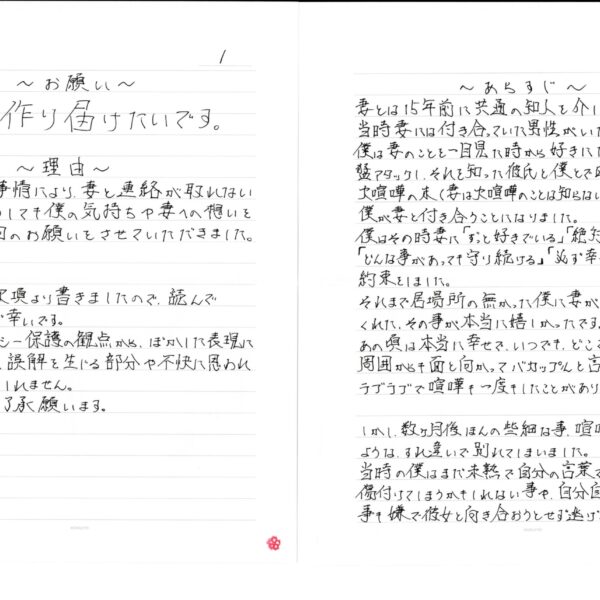 1
～お願い～
作り届けたいです。
～理由～
事情により、妻と連絡が取れない
しても僕の気持ちや妻への想いを
回のお願いをさせていただきました。
次項より書きましたので、読んで
幸いです。
シー保護の観点から、ぼかした表現に
誤解を生じる部分や不快に思われ
しれません。
了承願います。
～あらすじ～
妻とは15年前に共通の知人を介し
当時妻には付き合っていた男性がいた
僕は妻のことを一目見た時から好きに
猛アタックし、それを知った彼氏と僕とで
大喧嘩の末(妻は大喧嘩のことは知らない
僕が妻と付き合うことになりました。
僕はその時妻に「ずっと好きでいる」「絶対
「どんな事があっても守り続ける」「必ず幸
約束をしました。
それまで居場所の無かった僕に妻が
くれた、その事が本当に嬉しかったです
あの頃は本当に幸せで、いつでも、どこ
周囲からも面と向かってバカップルと言
ラブラブで喧嘩も一度もしたことがあり
しかし、数ヶ月後ほんの些細な事、喧嘩
ような、すれ違いで別れてしまいました。
当時の僕はまだ未熟で自分の言葉で
傷付けてしまうかもしれない事や、自分自
事も嫌で彼女と向き合おうとせず逃げ